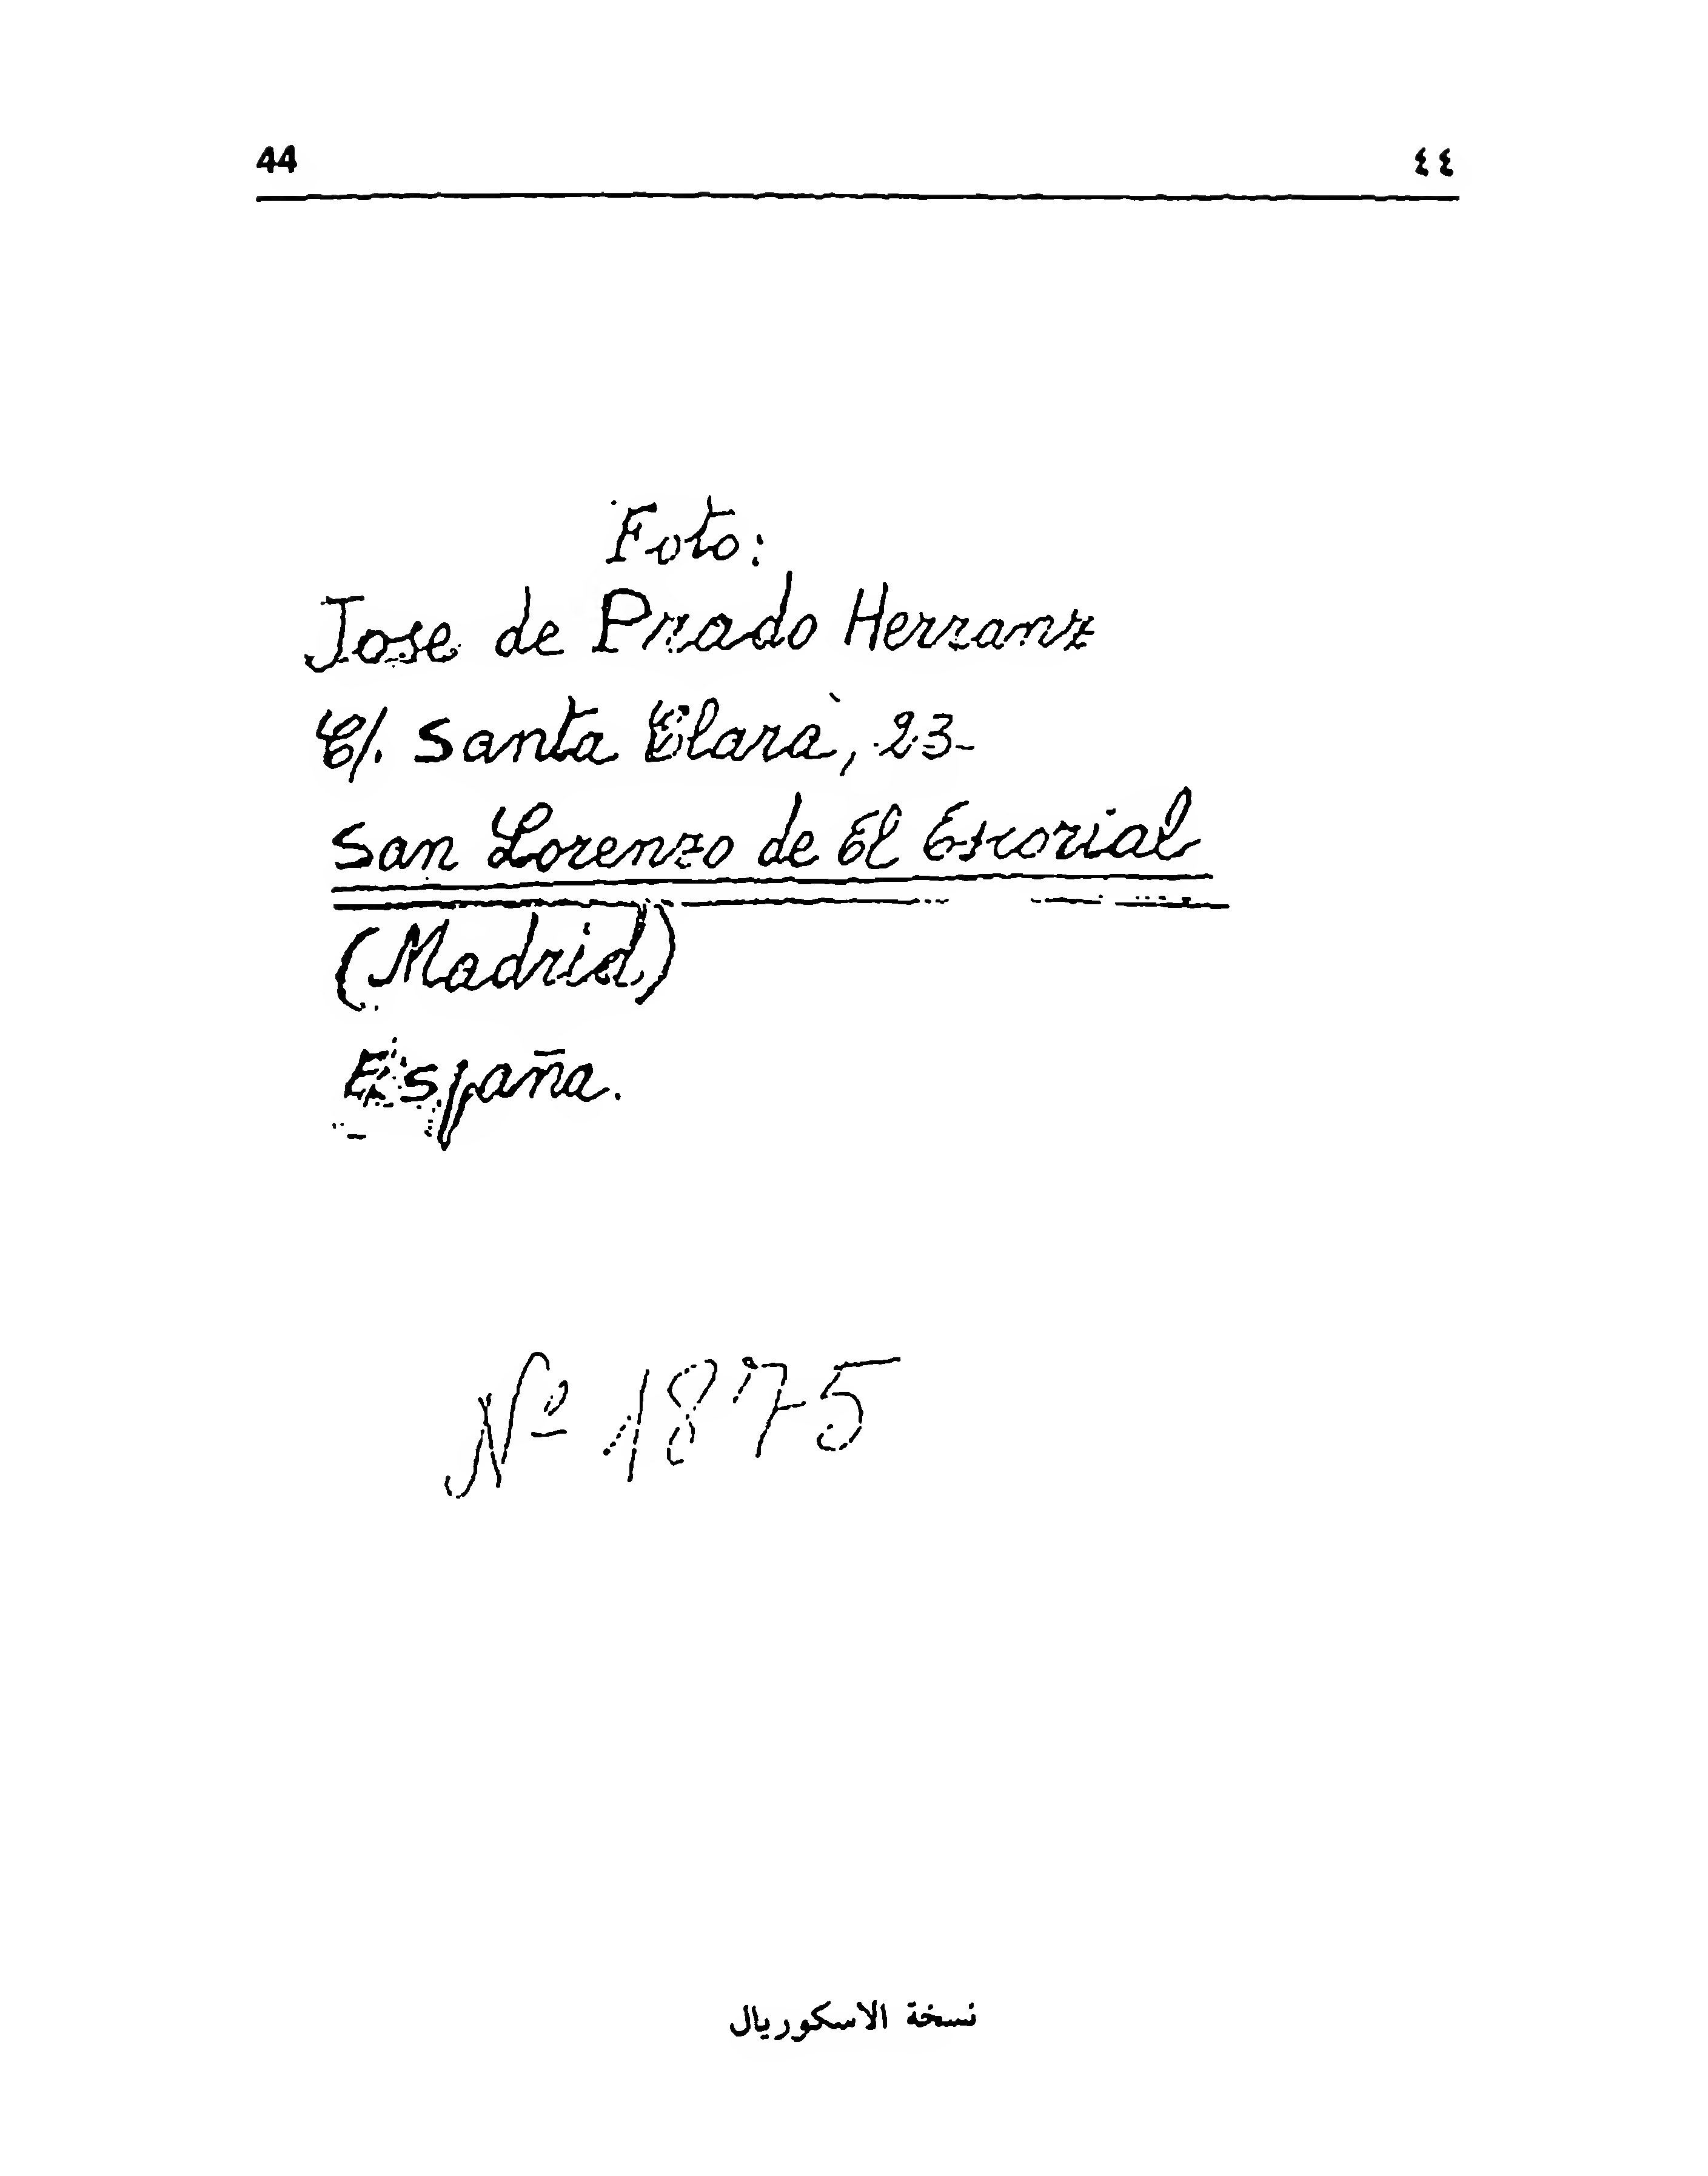 44 ٤٤
Foto:
Jose de Prado Herranz
C/. Santa Clara, 23-
San Lorenzo de El Escorial
(Madrid)
España.
Nº 1875
نسخة الاسكوريال